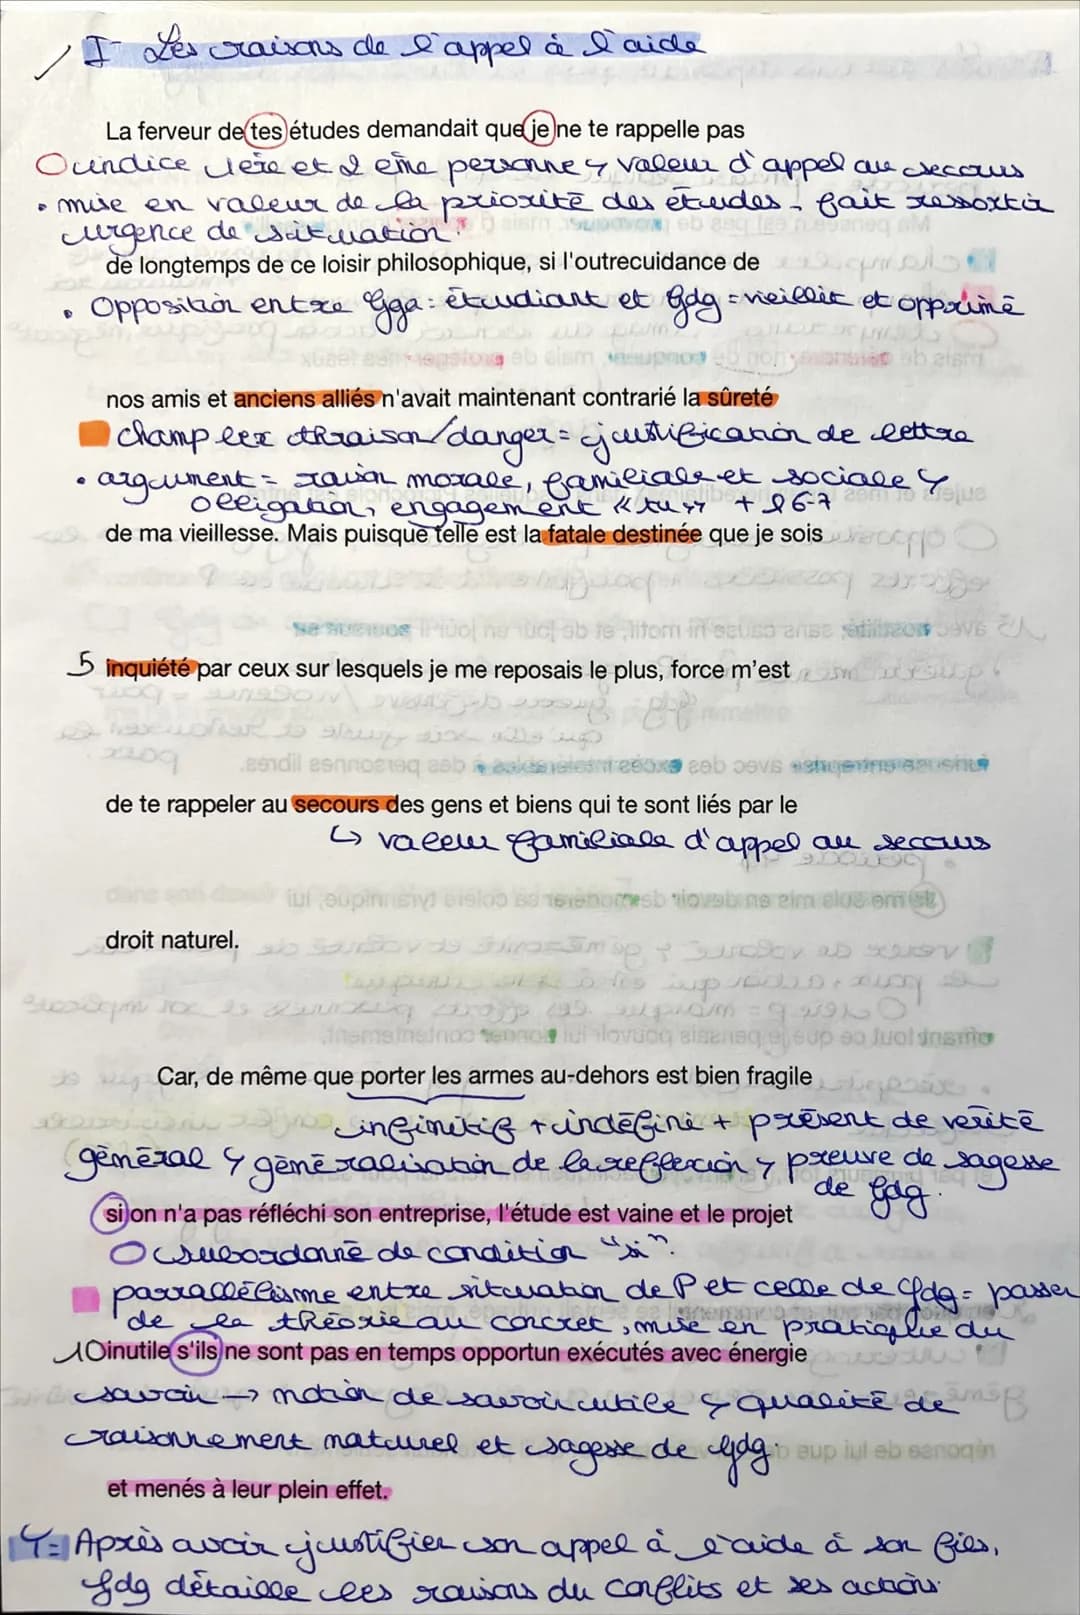 I- Les raisons de l'appel à l'aide
La ferveur de tes études demandait que je ne te rappelle pas
O indice 1ère et 2 eme personne ↳ valeur d'appel au secours
• mise en valeur de la priorité des études - fait ressortir
urgence de situation.
de longtemps de ce loisir philosophique, si l'outrecuidance de
• Opposition entre Gga = étudiant et Gdg = vieillit et opprimé
nos amis et anciens alliés n'avait maintenant contrarié la sûreté
champ lex thraison/danger = justification de lettre
• argument = raison morale, familiale et sociale ↳
obligation, engagement « tu » + l 6-7
de ma vieillesse. Mais puisque telle est la fatale destinée que je sois
5 inquiété par ceux sur lesquels je me reposais le plus, force m'est
de te rappeler au secours des gens et biens qui te sont liés par le
↳ valeur familiale d'appel au secours
droit naturel.
Car, de même que porter les armes au-dehors est bien fragile
infinitif + indéfini + présent de vérité
général ↳ généralisation de la reflexion ↳ preuve de sagesse
de Gdg.
si on n'a pas réfléchi son entreprise, l'étude est vaine et le projet
O subordonné de condition "si".
parrallélisme entre situation de P et celle de Gdg = passer
de la théorie au concret, mise en pratique du
10 inutile s'ils ne sont pas en temps opportun exécutés avec énergie
savoir → notion de savoir utile ↳ qualité de
raisonnement naturel et sagesse de Gdg.
et menés à leur plein effet.
↳ = Après avoir justifier son appel à l'aide à son fils,
Gdg détaille les raisons du conflits et ses actions.